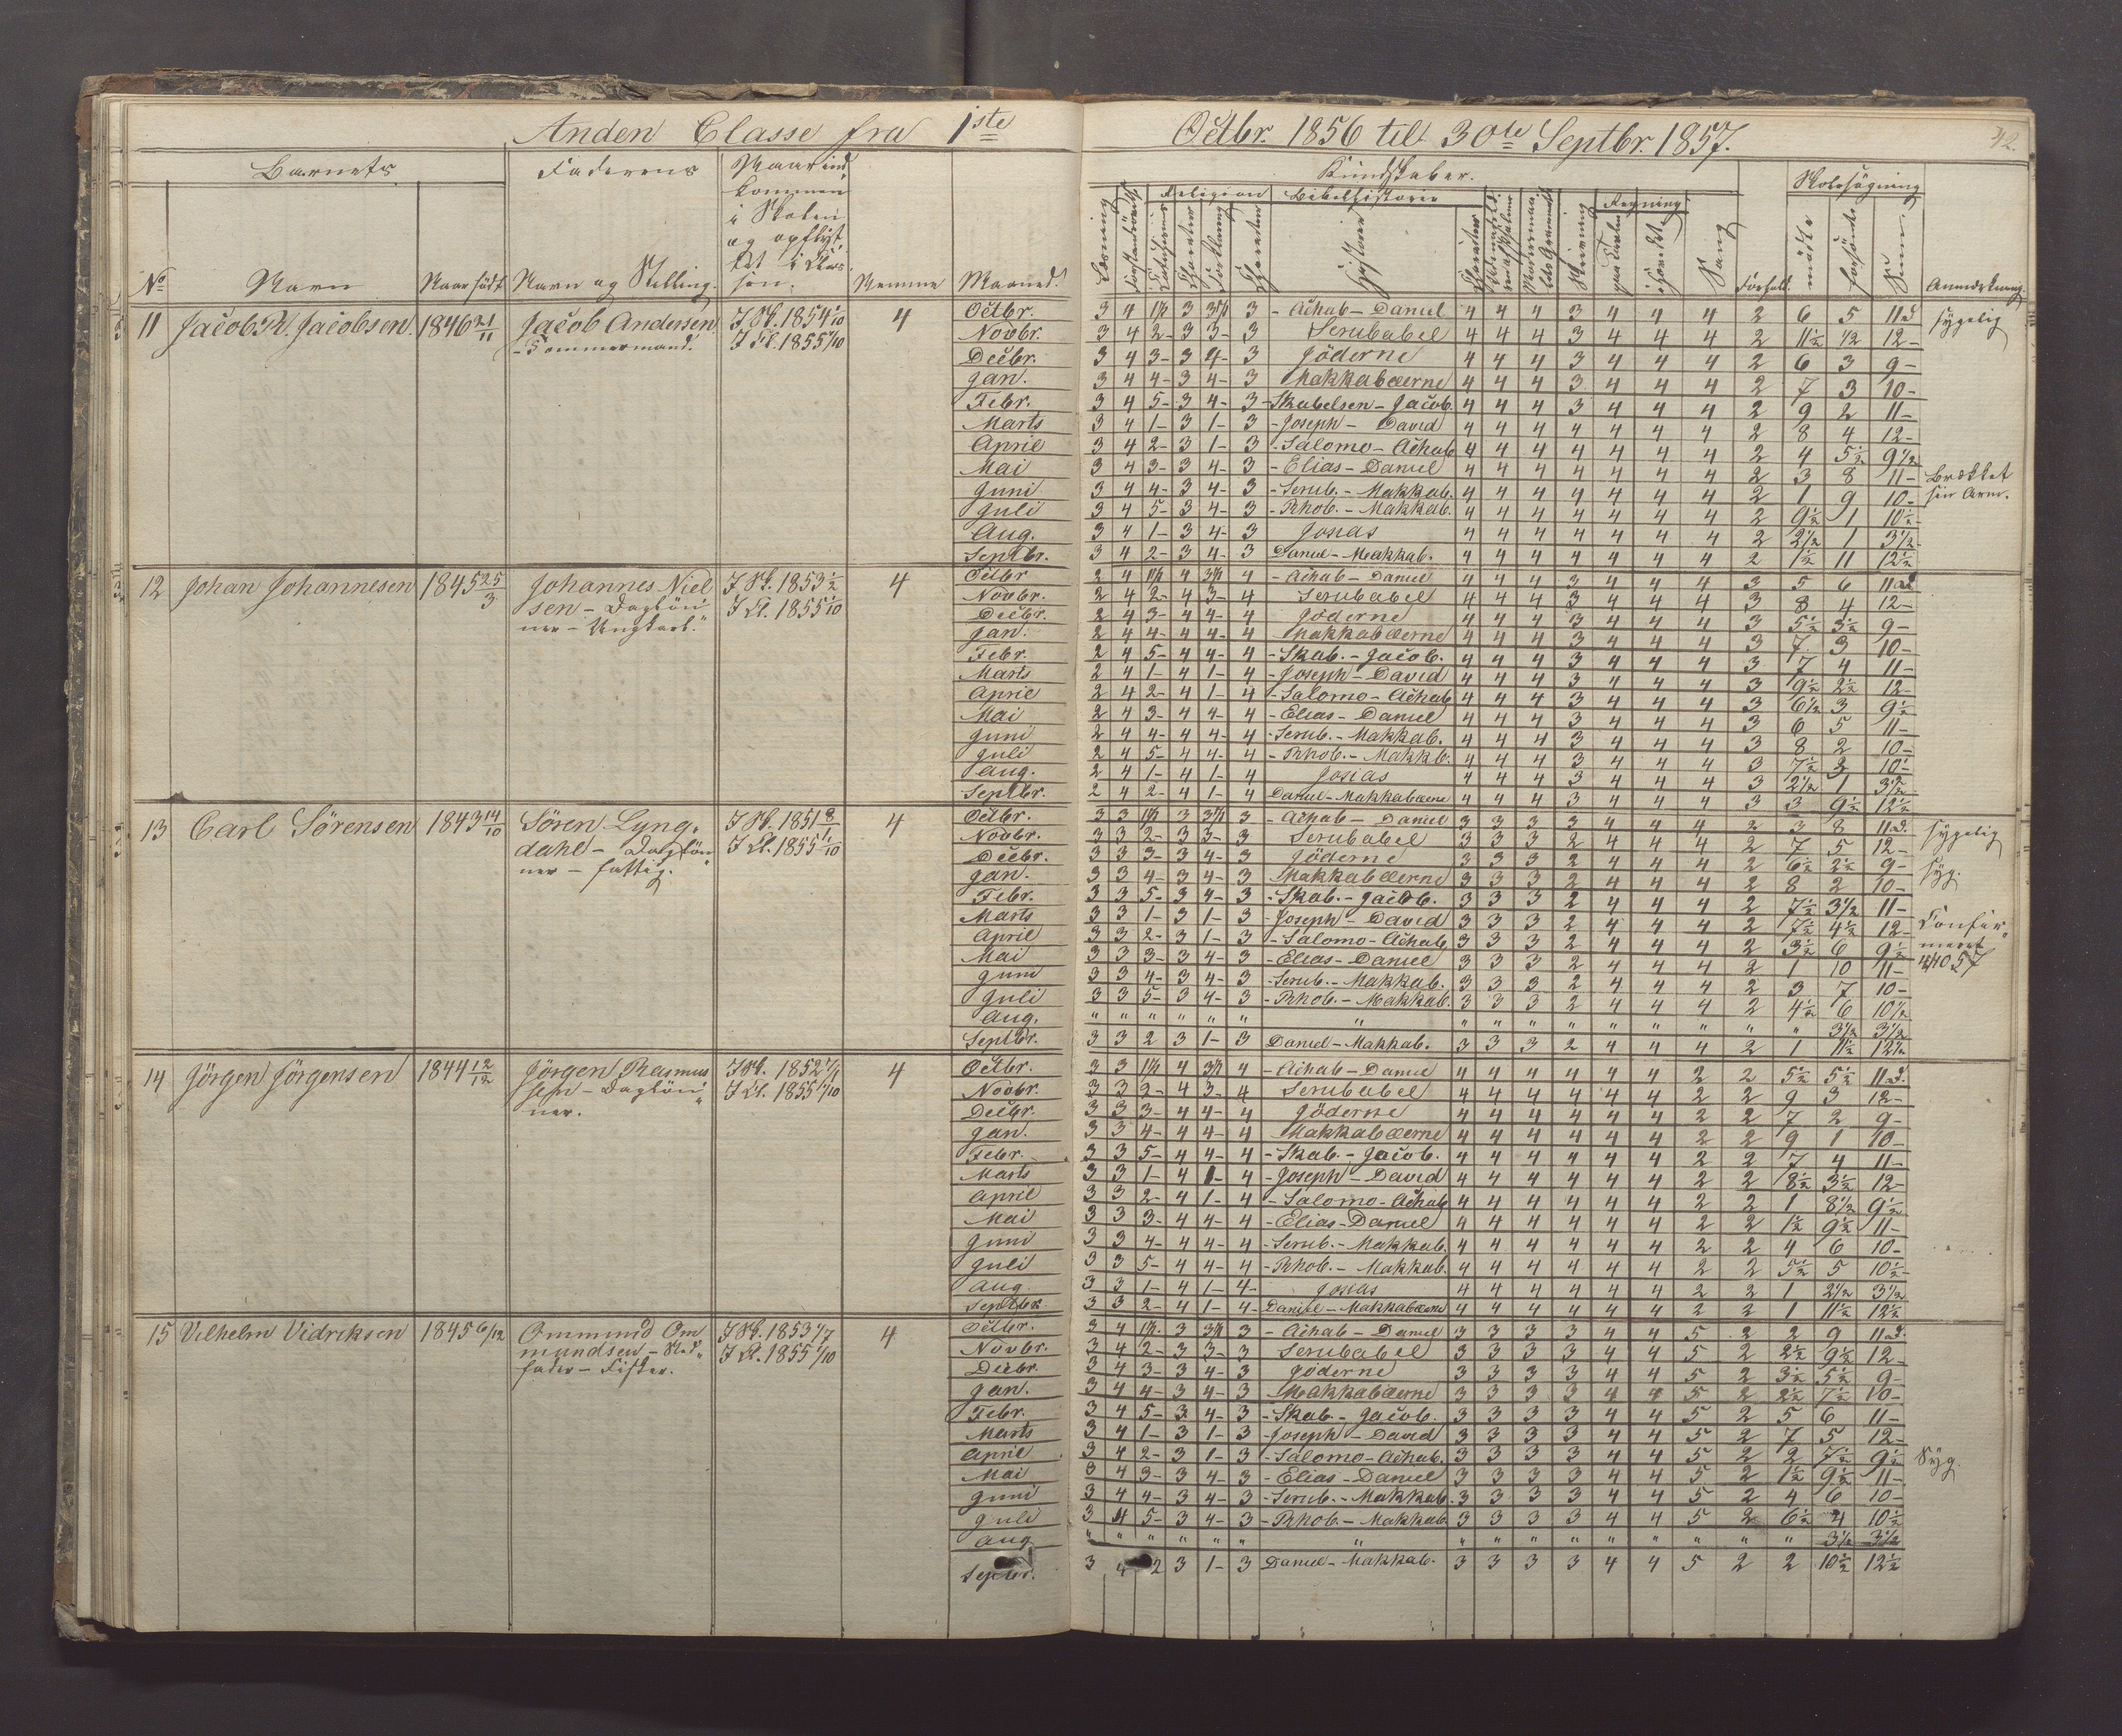 Anden Classe fra 1ste Octbr. 1856 til 30te Septbr. 1857.
42.
Barnets Faderens Naar ind-
kommen
i Skolen
og opflyt-
tet i Clas-
sen.
Kundskaber. Skolesøgning
Religion Bibelhistorie Regning
No Navn Naar født Navn og Stilling. Nemme Maaned.
Læsning Forklaring Karakter Historie Karakter Skrivning Sang Forhold. mødte forsømte Sum Anmærkning.
11 Jacob R. Jacobsen. 1846 21/11 Jacob Andersen J Sk. 1854 1/10 4
- Tømmermand. J Cl. 1855 1/10
Octbr. 3 4 1½ 3 3½ 3 - Achab - Daniel 4 4 4 3 4 4 4 2 6 5 11 d sygelig
Novbr. 3 4 2- 3 3- 3 Serubabel 4 4 4 3 4 4 4 2 11½ ½ 12-
Decbr. 3 4 3- 3 4- 3 Jöderne 4 4 4 3 4 4 4 2 6 3 9-
Jan. 3 4 4- 3 4- 3 Makkabæerne 4 4 4 3 4 4 4 2 7 3 10-
Febr. 3 4 5- 3 4- 3 - Skabelsen - Jacob. 4 4 4 3 4 4 4 2 9 2 11-
Marts 3 4 1- 3 1- 3 - Joseph - David 4 4 4 4 4 4 4 2 8 4 12-
April 3 4 2- 3 1- 3 - Salomo - Achab 4 4 4 4 4 4 4 2 4 5½ 9½
Mai 3 4 3- 3 4- 3 - Elias - Daniel 4 4 4 4 4 4 4 2 3 8 11- Brækket
Juni 3 4 4- 3 4- 3 - Serub. - Makkab. 4 4 4 4 4 4 4 2 1 9 10- sin Arm.
Juli 3 4 5- 3 4- 3 - Rhob. - Makkab. 4 4 4 4 4 4 4 2 9½ 1 10½-
Aug. 3 4 1- 3 4- 3 Josias 4 4 4 4 4 4 4 2 2½ 1 3½-
Septbr. 3 4 2- 3 4- 3 Daniel - Makkab. 4 4 4 4 4 4 4 2 1½ 11 12½
12 Johan Johannesen 1845 25/3 Johannes Niel J Sk. 1853 1/2 4
sen - Dagløn J Cl. 1855 1/10
ner - Ungkarl.
Octbr 2 4 1½ 4 3½ 4 - Achab - Daniel 4 4 4 3 4 4 4 3 5 6 11 d
Novbr. 2 4 2- 4 3- 4 Serubabel 4 4 4 3 4 4 4 3 8 4 12-
Decbr. 2 4 3- 4 4- 4 Jöderne 4 4 4 3 4 4 4 3 5½ 3½ 9-
Jan. 2 4 4- 4 4- 4 Makkabæerne 4 4 4 3 4 4 4 3 7 3 10-
Febr. 2 4 5- 4 4- 4 - Skab. - Jacob. 4 4 4 3 4 4 4 3 7 4 11-
Marts 2 4 1- 4 1- 4 - Joseph - David 4 4 4 3 4 4 4 3 9½ 2½ 12-
April 2 4 2- 4 1- 4 - Salomo - Achab 4 4 4 3 4 4 4 3 6½ 3 9½
Mai 2 4 3- 4 4- 4 - Elias - Daniel 4 4 4 3 4 4 4 3 6 5 11-
Juni 2 4 4- 4 4- 4 - Serub. - Makkab. 4 4 4 3 4 4 4 3 8 2 10-
Juli 2 4 5- 4 4- 4 - Rhob. - Makkab. 4 4 4 3 4 4 4 3 7½ 3 10½
Aug. 2 4 1- 4 1- 4 Josias 4 4 4 3 4 4 4 3 2½ 1 3½
Septbr. 2 4 2- 4 1- 4 Daniel - Makkabæerne 4 4 4 3 4 4 4 3 3 9½ 12½
13 Carl Sörensen 1843 14/10 Sören Lyng- J Sk. 1851 8/1 4
dahl - Dagløn J Cl. 1855 1/10
ner - fattig.
Octbr. 3 3 1½ 3 3½ 3 - Achab - Daniel 3 3 3 3 4 4 4 2 3 8 11 d. sygelig
Novbr. 3 3 2- 3 3- 3 Serubabel 3 3 3 2 4 4 4 2 7 5 12-
Decbr. 3 3 3- 3 4- 3 Jöderne 3 3 3 2 4 4 4 2 6½ 2½ 9- syg.
Jan. 3 3 4- 3 4- 3 Makkabæerne 3 3 3 2 4 4 4 2 8 2 10-
Febr. 3 3 5- 3 4- 3 - Skab. - Jacob. 3 3 3 2 4 4 4 2 7½ 3½ 11-
Marts 3 3 1- 3 1- 3 - Joseph - David 3 3 3 2 4 4 4 2 7½ 4½ 12- Confir-
April 3 3 2- 3 1- 3 - Salomo - Achab 3 3 3 2 4 4 4 2 3½ 6 9½ meret
Mai 3 3 3- 3 4- 3 - Elias - Daniel 3 3 3 2 4 4 4 2 1 10 11- 4/10 57
Juni 3 3 4- 3 4- 3 - Serub. - Makkab. 3 3 3 2 4 4 4 2 3 7 10-
Juli 3 3 5- 3 4- 3 - Rhob. - Makkab. 3 3 3 2 4 4 4 2 4½ 6 10½
Aug. " " " " " " " " " " " " " " " " 3½ 3½
Septbr. 3 3 2 3 1- 3 Daniel - Makkab. 3 3 3 2 4 4 4 2 1 11½ 12½
14 Jörgen Jörgensen 1844 12/12 Jörgen Rasmus J Sk. 1852 7/1 4
sen - Dagløn J Cl. 1855 1/10
ner.
Octbr. 3 3 1½ 4 3½ 4 - Achab - Daniel 4 4 4 4 4 4 2 2 5½ 5½ 11 d.
Novbr. 3 3 2- 4 3- 4 Serubabel 4 4 4 4 4 4 2 2 9 3 12-
Decbr. 3 3 3- 4 4- 4 Jöderne 4 4 4 4 4 4 2 2 7 2 9-
Jan. 3 3 4- 4 4- 4 Makkabæerne 4 4 4 4 4 4 2 2 9 1 10-
Febr. 3 3 5- 4 4- 4 - Skab. - Jacob. 4 4 4 4 4 4 2 2 7 4 11-
Marts 3 3 1- 4 1- 4 - Joseph - David 4 4 4 4 4 4 2 2 8½ 3½ 12-
April 3 3 2- 4 1- 4 - Salomo - Achab 4 4 4 4 4 4 2 2 1 8½ 9½
Mai 3 3 3- 4 4- 4 - Elias - Daniel 4 4 4 4 4 4 2 2 1½ 9½ 11-
Juni 3 3 4- 4 4- 4 - Serub. - Makkab. 4 4 4 4 4 4 2 2 4 6 10-
Juli 3 3 5- 4 4- 4 - Rhob. - Makkab. 4 4 4 4 4 4 2 2 5½ 5 10½-
Aug 3 3 1- 4 1- 4- Josias 4 4 4 4 4 4 2 2 1 2½ 3½
Septbr. 3 3 2- 4 1- 4- Daniel - Makkabæerne 4 4 4 4 4 4 2 2 1 11½ 12½
15 Vilhelm Vidriksen 1845 6/12 Ommund Om J Sk. 1853 1/7 4
mundsen - Sted- J Cl. 1855 1/10
fader - Fisker.
Octbr. 3 4 1½ 3 3½ 3 - Achab - Daniel 3 3 3 3 4 4 5 2 2 9 11 d.
Novbr. 3 4 2- 3 3- 3 Serubabel 3 3 3 3 4 4 5 2 2½ 9½ 12-
Decbr. 3 4 3- 3 4- 3 Jöderne 3 3 3 3 4 4 5 2 3½ 5½ 9-
Jan. 3 4 4- 3 4- 3 Makkabæerne 3 3 3 3 4 4 5 2 2½ 7½ 10-
Febr. 3 4 5- 3 4- 3 - Skab. - Jacob. 3 3 3 3 4 4 5 2 5 6 11-
Marts 3 4 1- 3 1- 3 - Joseph - David 3 3 3 3 4 4 5 2 7 5 12-
April 3 4 2- 3 1- 3 - Salomo - Achab. 3 3 3 3 4 4 5 2 2 7½ 9½ Syg.
Mai 3 4 3- 3 4- 3 - Elias - Daniel 3 3 3 3 4 4 5 2 1½ 9½ 11-
Juni 3 4 4- 3 4- 3 - Serub. - Makkab. 3 3 3 3 4 4 5 2 4 6 10-
Juli 3 4 5- 3 4- 3 - Rhob. - Makkab. 3 3 3 3 4 4 5 2 6½ 4 10½
Aug " " " " " " " " " " " " " " " " 3½ 3½
Septbr. 3 4 2 3 1- 3 Daniel - Makkab. 3 3 3 3 4 4 5 2 2 10½ 12½